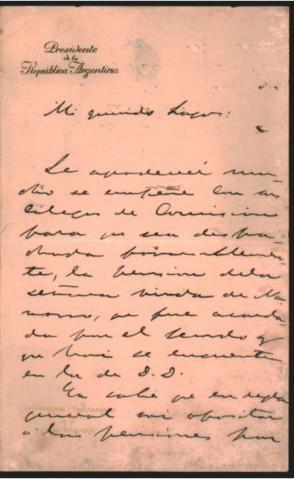 Presidente
de la
República Argentina
Mi querido Lagos:
Le agradeceré mu-
cho se empeñe con sus
colegas de Comision
para que sea despa-
chada favorablemen-
te, la pension de la
señora viuda de Na-
varro, que fue acorda-
da por el Senado y
que hoi se encuentra
en la de D.D.
Ya sabe que en regla
general soi opositor
á las pensiones por